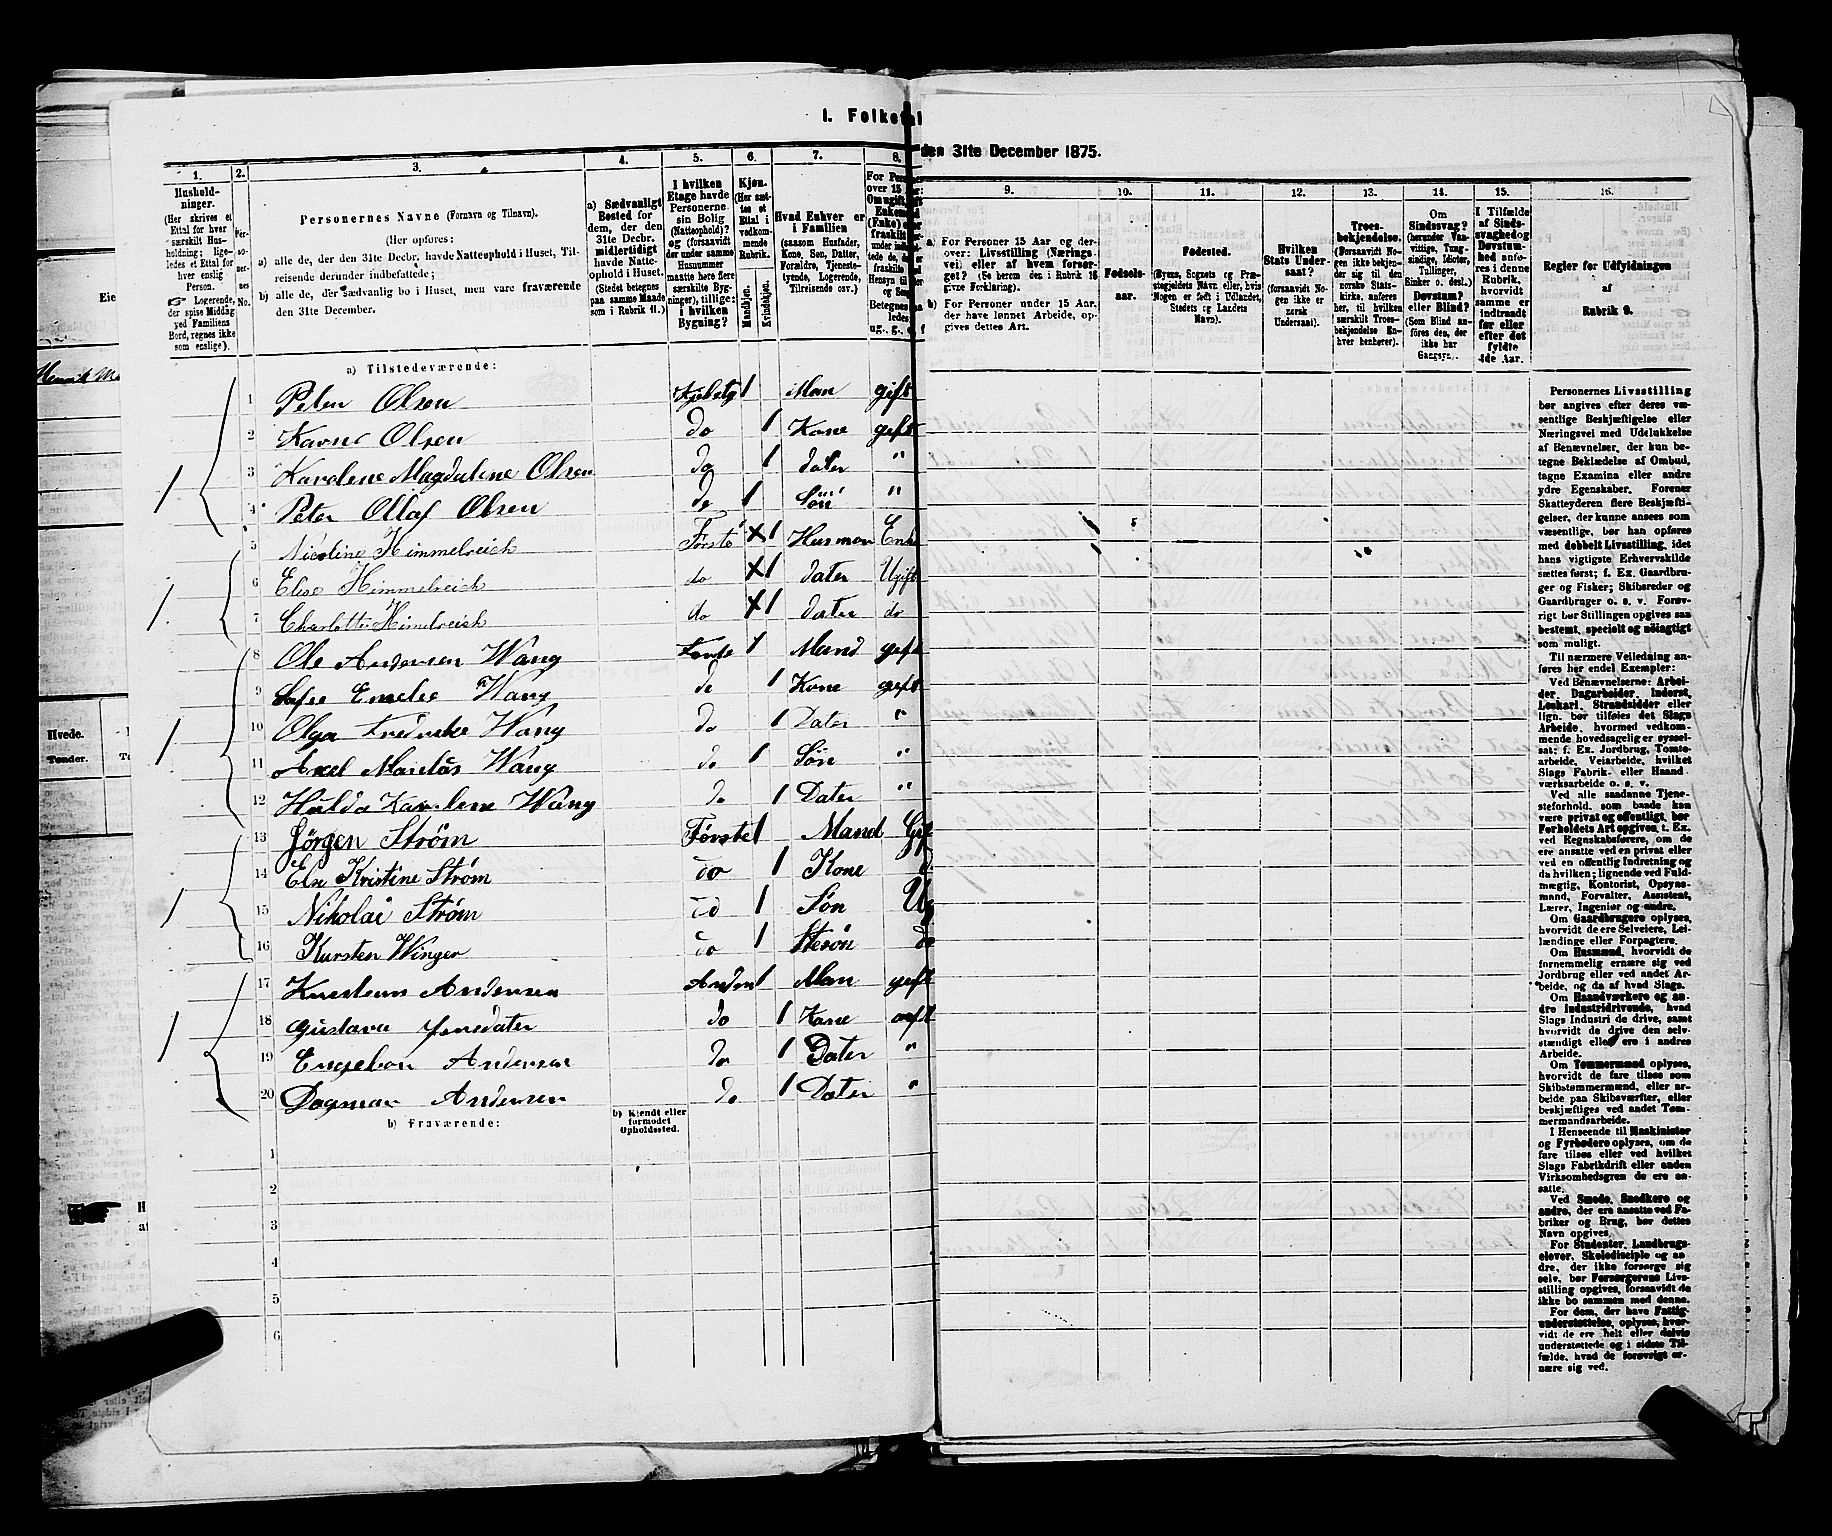 I. Folketal
den 31te December 1875.
1.
Hushold-
ninger.
(Her skrives et
Ettal for hver
særskilt Hus-
holdning; lige-
ledes et Ettal for
hver enslig
Person.
Logerende,
der spise Middag
ved Familiens
Bord, regnes ikke
som enslige).
2.
Per-
so-
ner-
nes
No.
3.
Personernes Navne (Fornavn og Tilnavn).
(Her opføres:
a) alle de, der den 31te Decbr. havde Natteophold i Huset, Til-
reisende derunder indbefattede;
b) alle de, der sædvanlig bo i Huset, men vare fraværende
den 31te December.
4.
a) Sædvanligt
Bosted for
dem, der den
31te Decbr.
midlertidigt
havde Natte-
ophold i Huset.
(Stedet betegnes
paa samme Maade
som i Rubrik 11.)
5.
I hvilken
Etage havde
Personerne
sin Bolig
(Natteophold)?
og (forsaavidt
der under samme
Husnummer
maatte høre flere
særskilte Byg-
ninger), tillige:
i hvilken
Bygning?
6.
Kjøn.
(Her sæt-
tes et
Ettal i
vedkom-
mende
Rubrik.)
Mandkjøn.
Kvindekjøn.
7.
Hvad Enhver er
i Familien
(saasom Husfader,
Kone, Søn, Datter,
Forældre, Tjeneste-
tyende, Logerende,
Tilreisende osv.)
8.
9.
a) For Personer 15 Aar og der-
over: Livsstilling (Nærings-
vei) eller af hvem forsør-
get? (Se herom den i Rubrik 16
givne Forklaring).
b) For Personer under 15 Aar,
der have lønnet Arbeide, op-
gives dettes Art.
10.
Fødsels-
aar.
11.
Fødested.
(Byens, Sognets og Præ-
stegjeldets Navn eller, hvis
Nogen er født i Udlandet,
Stedets og Landets
Navn).
12.
Hvilken
Stats Under-
saat?
(forsaavidt No-
gen ikke er
norsk
Undersaat).
13.
Troes-
bekjendelse.
(Forsaavidt No-
gen ikke bekjen-
der sig til den
norske Stats-
kirke, anføres
her, til hvilken
særskilt Troes-
bekjendelse En-
hver henhører).
14.
Om
Sindssvag?
(herunder Van-
vittige, Tung-
sindige, Idioter,
Tullinger,
Sinker o. desl.)
Døvstum?
eller Blind?
(Som Blind an-
føres den, der
ikke har
Gangsyn).
15.
I Tilfælde
af Sinds-
svaghed og
Døvstum-
hed anfø-
res i denne
Rubrik,
hvorvidt
samme er
indtraadt
før eller
efter det
fyldte
4de Aar.
16.
Regler for Udfyldningen
af
Rubrik 9.
a) Tilstedeværende:
1 Peter Olsen 1 Man gift
2 do 1 Kone gift
3 Karolene Magdalene Olsen do 1 dater "
4 Peter Ollaf Olsen do 1 Søn "
5 Nicoline Himmelreich Første 1 Husmon Enke
6 Elise Himmelreich do 1 dater Ugift
7 Charlotte Himelreich do 1 dater do
8 Ole Andersen Wang 1 Mand gift
9 Emelie Wang do 1 Kone gift
10 Olga Wang do 1 Dater "
11 Axel Wang do 1 Søn "
12 Hulda Karolene Wang do 1 Dater "
13 Jörgen Strøm Første 1 Mand Gif
14 Else Kristine Strøm do 1 Kone d
15 Nikolai Strøm do 1 Søn Ug
16 Karsten Winger do 1 Stesøn do
17 Andersen Anden 1 Man gift
18 Gustava do 1 Kone gift
19 Engebor Andersen do 1 Dater "
20 Dagmar Andersen do 1 Dater "
b) Fraværende:
b) Kjendt eller
formodet
Opholdssted.
1
2
3
4
5
6
Personernes Livsstilling
bør angives efter deres væ-
sentlige Beskjæftigelse eller
Næringsvei med Udelukkelse
af Benævnelser, der kun be-
tegne Beklædelse af Ombud,
tagne Examina eller andre
ydre Egenskaber. Forener
Skatteyderen flere Beskjæfti-
gelser, der kunne ansees som
væsentlige, bør han opføres
med dobbelt Livsstilling, idet
hans vigtigste Erhvervskilde
sættes først; f. Ex. Gaardbru-
ger og Fisker; Skibsreder og
Gaardbruger o. s. v. Forøv-
rigt bør Stillingen opgives saa
bestemt, specielt og nøiagtigt
som muligt.
Til nærmere Veiledning an-
føres her endel Exempler:
Ved Benævnelserne: Arbei-
der, Dagarbeider, Inderst,
Løskarl, Strandsidder eller
lign. bør tilføies det Slags
Arbeide, hvormed vedkom-
mende hovedsagelig er syssel-
sat; f. Ex. Jordbrug, Tomte-
arbeide, Veiarbeide, hvilket
Slags Fabrik- eller Haand-
værksarbeide o. s. v.
Ved alle saadanne Tjene-
steforhold, som baade kan
være privat og offentligt, bør
Forholdets Art opgives, f. Ex.
ved Regnskabsførere, om de
ere ansatte ved en privat eller
ved en offentlig Indretning og
da hvilken; lignende ved Fuld-
mægtig, Kontorist, Opsyns-
mand, Forvalter, Assistent,
Lærer, Ingeniør og andre.
Om Gaardbrugere oplyses,
hvorvidt de ere Selveiere, Lei-
lændinge eller Forpagtere.
Om Husmænd, hvorvidt de
fornemmelig ernære sig ved
Jordbrug eller ved andet Ar-
beide, og da af hvad Slags.
Om Haandværkere og an-
dre Industridrivende, hvad
Slags Industri de drive, samt
hvorvidt de drive den selv-
stændigt eller ere i andres
Arbeide.
Om Tømmermænd oplyses,
hvorvidt de fare tilsøs som
Skibstømmermænd, eller ar-
beide paa Skibsværfter, eller
beskjæftiges ved andet Tøm-
mermandsarbeide.
I Henseende til Maskinister
og Fyrbødere oplyses, om de
fare tilsøs eller ved hvilket
Slags Fabrikdrift eller anden
Virksomhedsgren de ere an-
satte.
Ved Smede, Snedkere og
andre, der ere ansatte ved Fa-
briker og Brug, bør dettes
Navn opgives.
For Studenter, Landbrugs-
elever, Skoledisciple og an-
dre, der ikke forsørge sig
selv, bør Forsørgerens Livs-
stilling opgives, forsaavidt de
ikke bo sammen med denne.
For dem, der have Fattig-
understøttelse, oplyses, hvor-
vidt de ere helt eller delvis
understøttede og i sidste Til-
fælde, hvad de forøvrigt er-
nære sig ved.
Hvede.
Tønder.